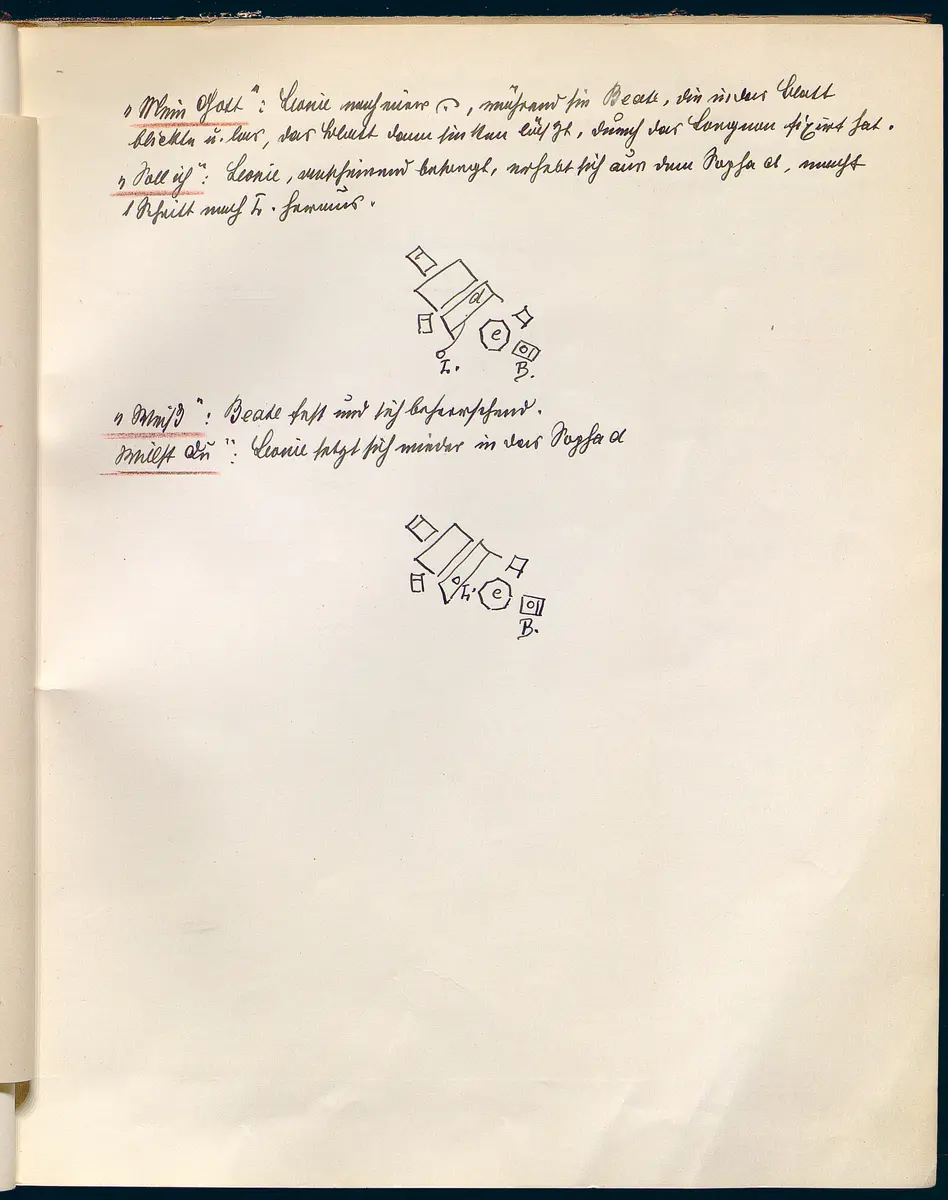 „Mein Gott": Leonie nach einer ⌒, während sie Beate, die in das Blatt
blickte u. las, das Blatt dann sinken läßt, durch das Lorgnon fixirt hat.
„Soll ich": Leonie, anscheinend besorgt, erhebt sich aus dem Sopha d, macht
1 Schritt nach L. heraus.
d
e
L.
B.
„Weiß": Beate fest und sich beherrschend.
Willst du": Leonie setzt sich wieder in das Sopha d
L.
e
B.